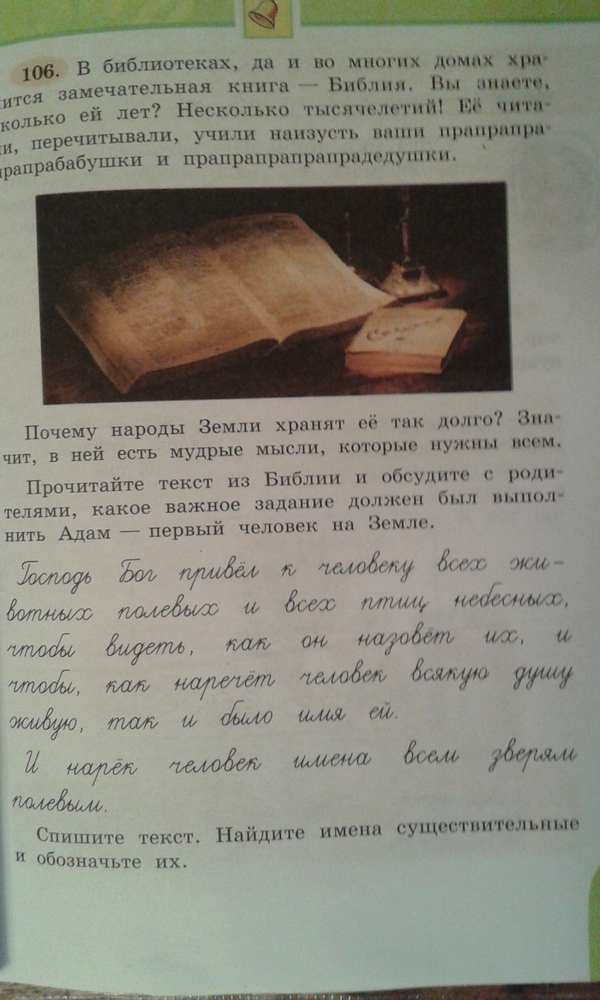 106. В библиотеках, да и во многих домах хра-
ится замечательная книга — Библия. Вы знаете,
колько ей лет? Несколько тысячелетий! Её чита-
и, перечитывали, учили наизусть ваши прапрапра-
рапрабабушки и прапрапрапрапрадедушки.
Почему народы Земли хранят её так долго? Зна-
чит, в ней есть мудрые мысли, которые нужны всем.
Прочитайте текст из Библии и обсудите с роди-
телями, какое важное задание должен был выпол-
нить Адам — первый человек на Земле.
Господь Бог привёл к человеку всех жи-
вотных полевых и всех птиц небесных,
чтобы видеть, как он назовёт их, и
чтобы, как наречёт человек всякую душу
живую, так и было имя ей.
И нарёк человек имена всем зверям
полевым.
Спишите текст. Найдите имена существительные
и обозначьте их.